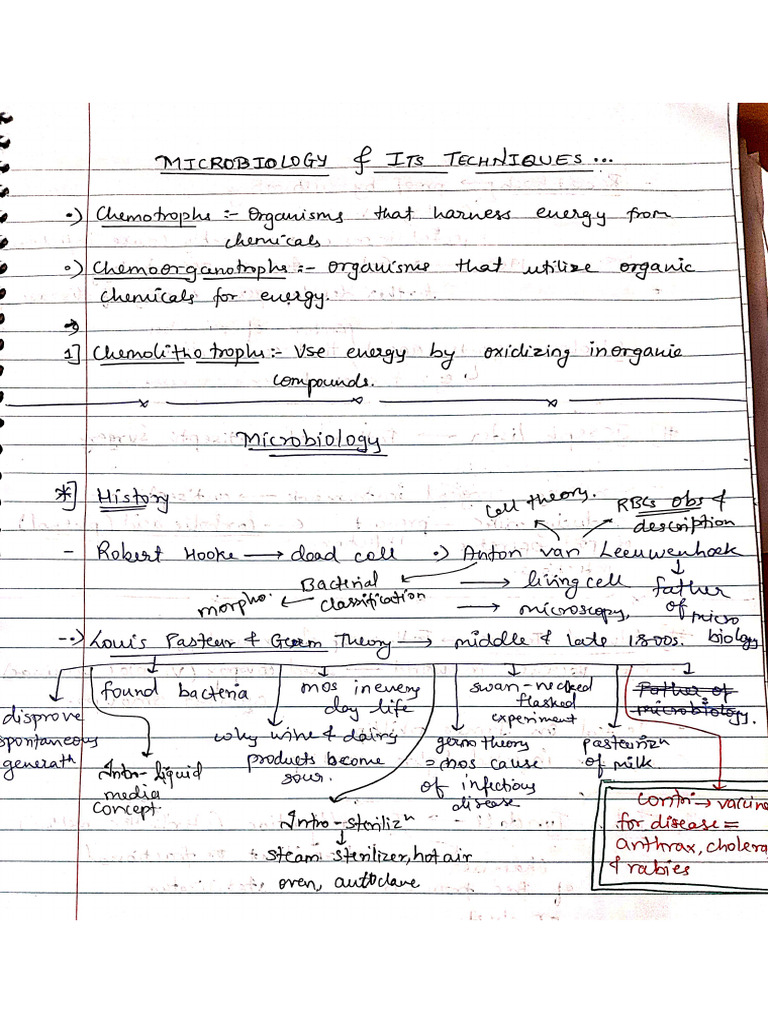 MICROBIOLOGY & ITS TECHNIQUES...
•) Chemotrophs :- Organisms that harness energy from
chemicals
•) Chemoorganotrophs :- organisms that utilize organic
chemicals for energy.
→
1] Chemolithotrophs :- Use energy by oxidizing inorganic
compounds.
Microbiology
*] History
Cell theory.
RBCs obs &
description
- Robert Hooke → dead cell •) Anton van Leeuwenhoek
morpho. ← Bacterial
classification
→ living cell
→ microscopy,
father
of micro
biology
--> Louis Pasteur & Germ Theory → middle & late 1800s.
disprove
spontaneous
generatn
found bacteria
Intro-liquid
media
concept.
mos in every
day life
why wine & dairy
products become
sour.
Intro-sterilizn
↓
steam sterilizer, hot air
oven, autoclave
swan-necked
flasked
experiment
germ theory
= mos cause
of infectious
disease
pasteurizn
of milk.
Father of
microbiology.
Contri → vaccine
for disease =
anthrax, cholera
& rabies